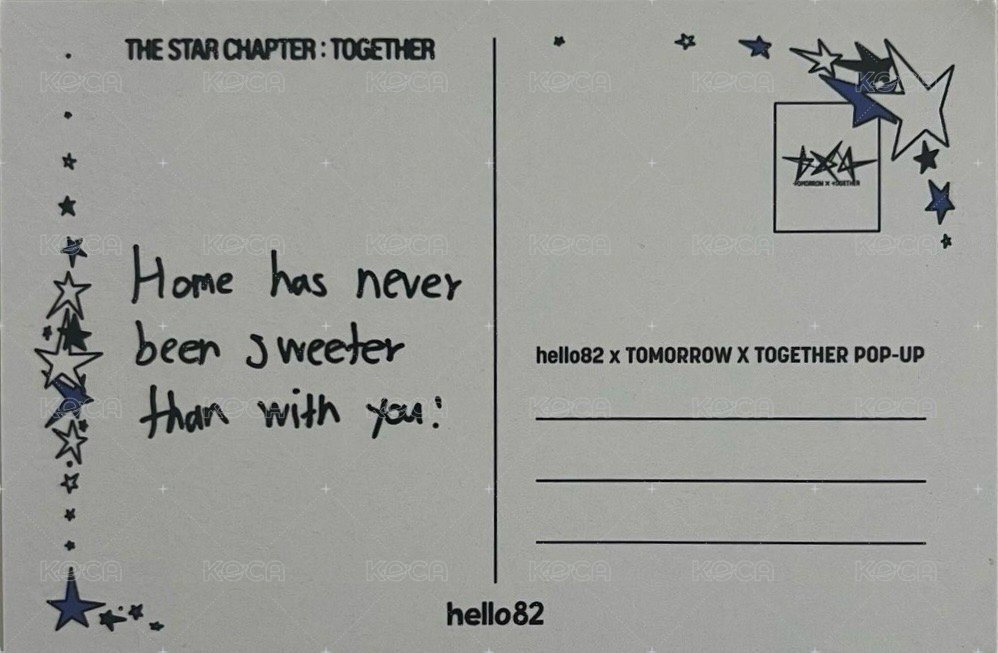 THE STAR CHAPTER : TOGETHER
Home has never
been sweeter
than with you!
TOMORROW X TOGETHER
hello82 x TOMORROW X TOGETHER POP-UP
hello82
KOCA